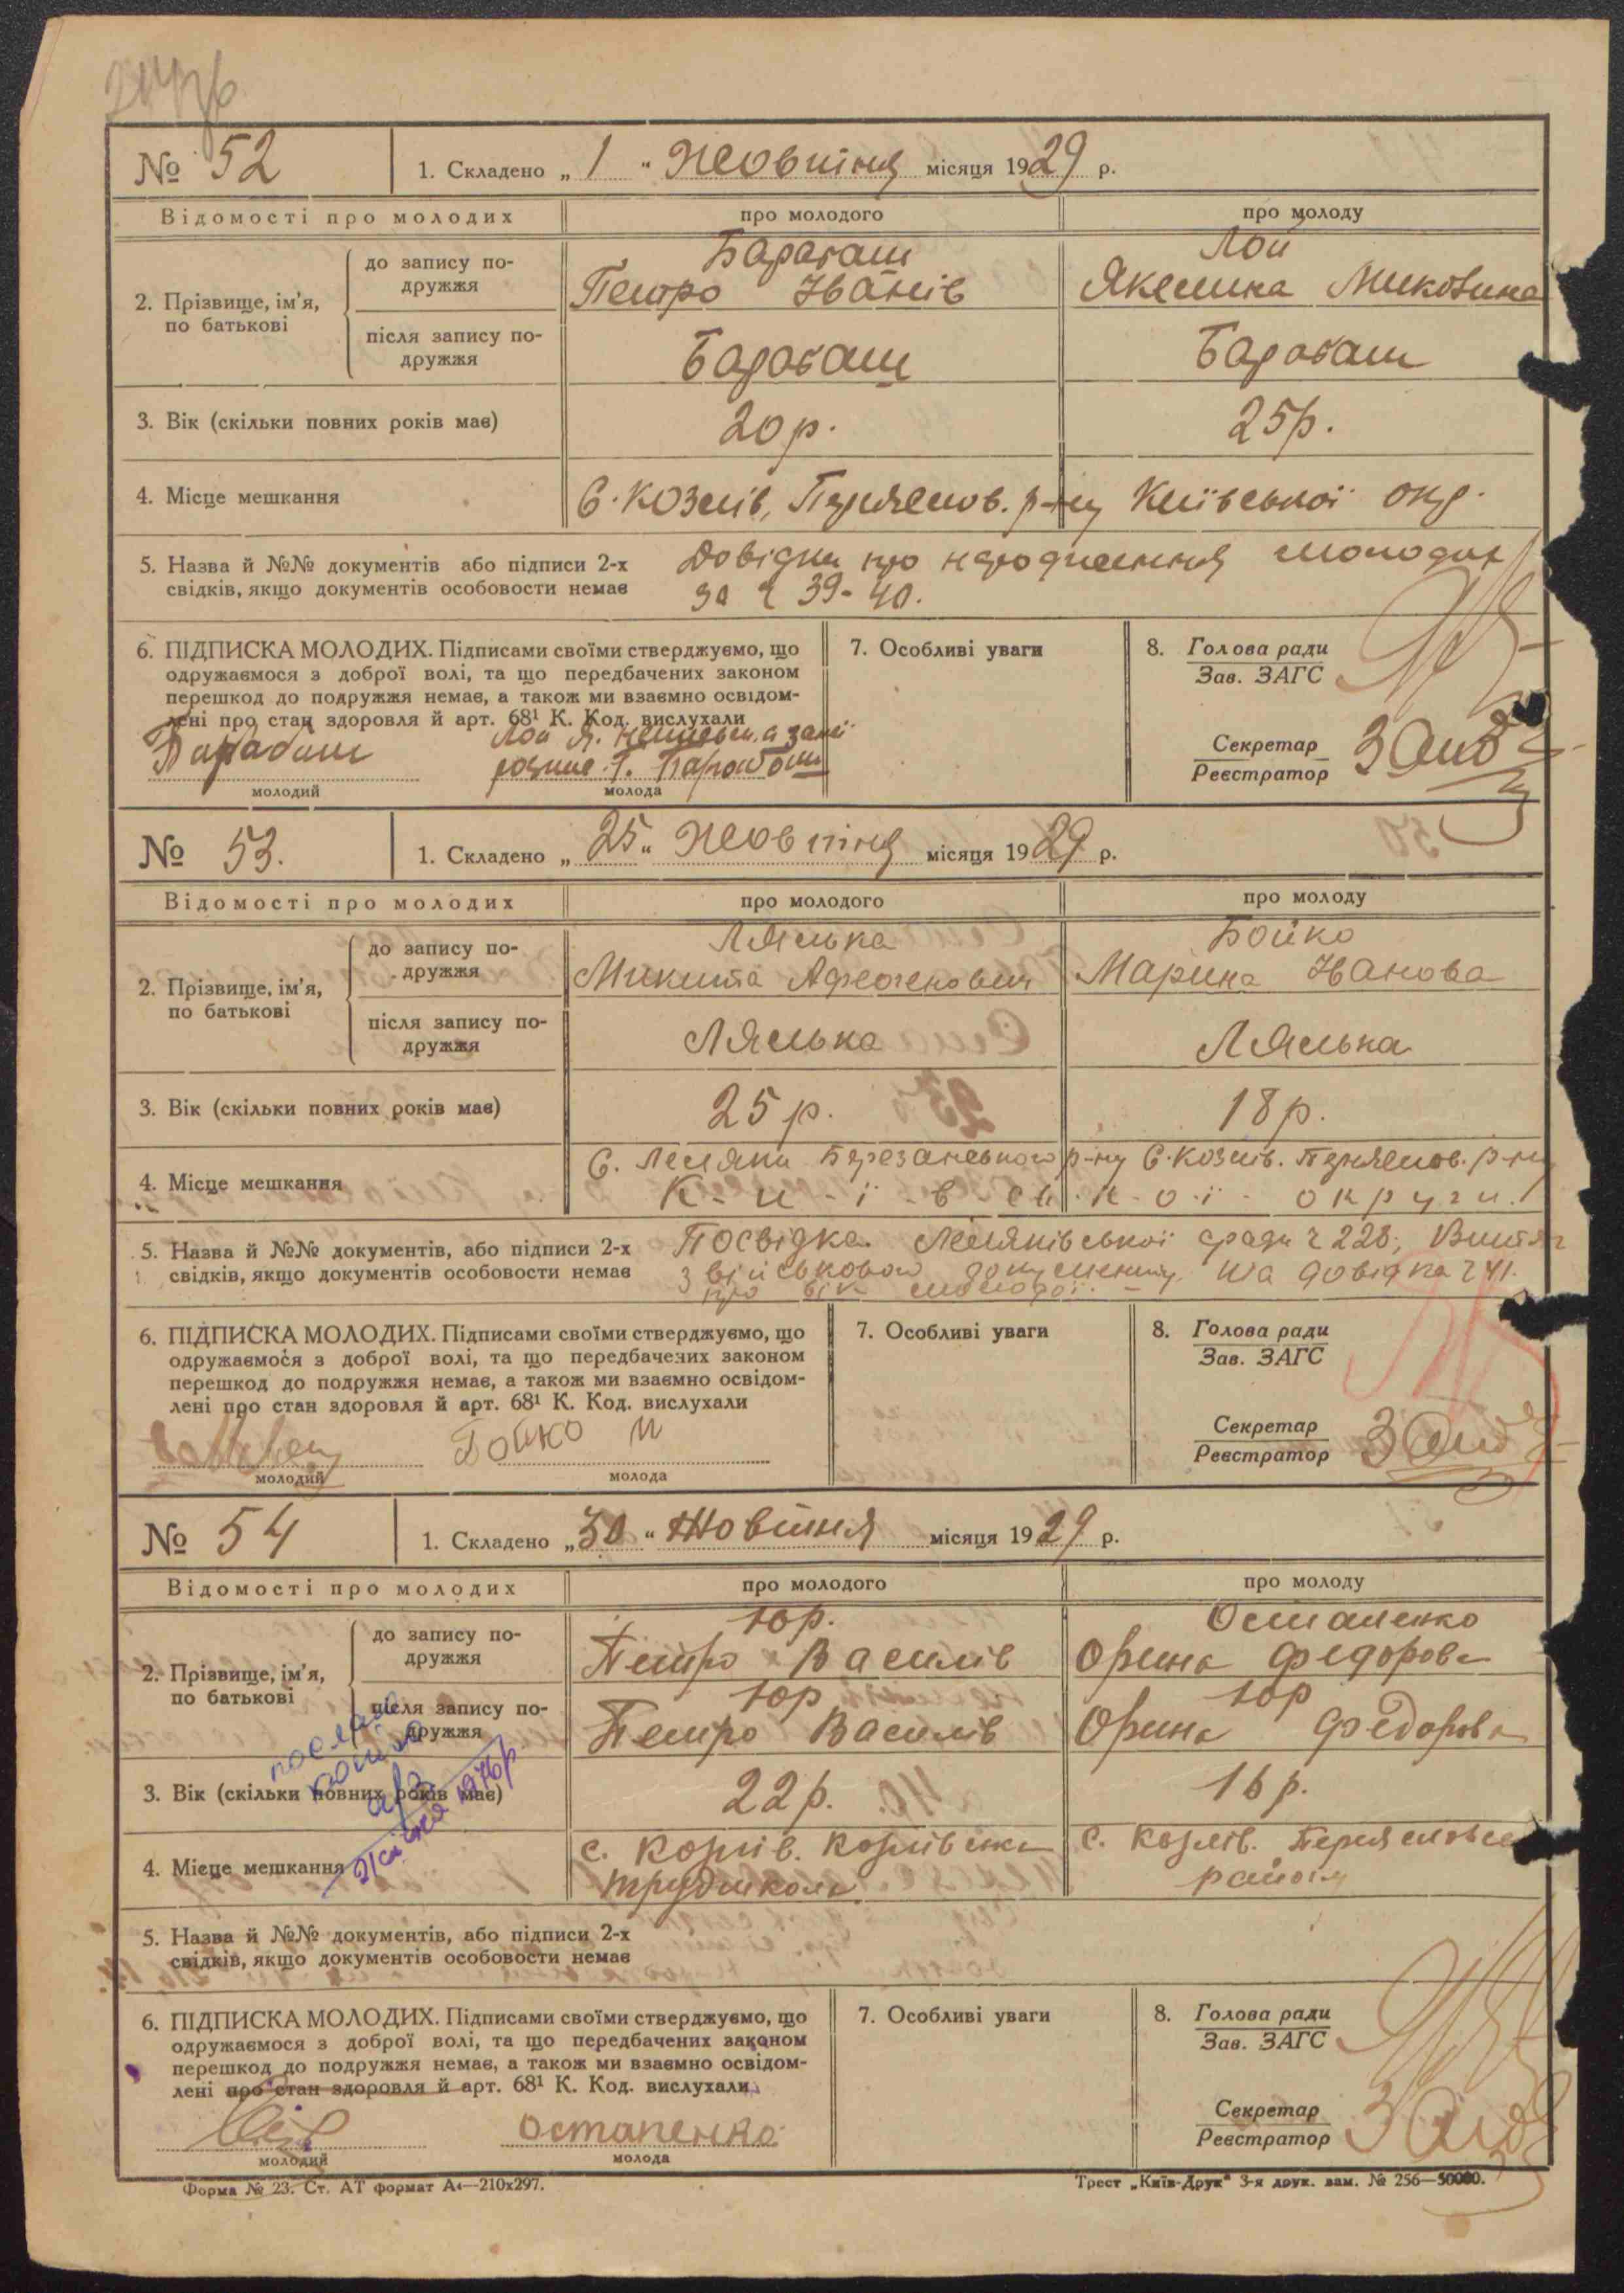 № 52 1. Складено „ 1 “ Жовтня місяця 1929 р.
Відомості про молодих про молодого про молоду
2. Прізвище, ім’я, по батькові
до запису подружжя
Барабаш Лой
Петро Іванів Якелина Миковина
після запису подружжя
Барабаш Барабаш
3. Вік (скільки повних років має) 20 р. 25 р.
4. Місце мешкання С. Козлів, Переяслов. р-ну Київської окр.
5. Назва й №№ документів або підписи 2-х Довідки про народження молодих
свідків, якщо документів особовости немає за ч 39-40.
6. ПІДПИСКА МОЛОДИХ. Підписами своїми стверджуємо, що 7. Особливі уваги 8. Голова ради
одружаємося з доброї волі, та що передбачених законом Зав. ЗАГС
перешкод до подружжя немає, а також ми взаємно освідом-
лені про стан здоровля й арт. 68¹ К. Код. вислухали
Барабаш Лой Я.
Секретар
Реєстратор
молодий молода
№ 53. 1. Складено „ 25 “ Жовтня місяця 1929 р.
Відомості про молодих про молодого про молоду
2. Прізвище, ім’я, по батькові
до запису подружжя
Лялька Бойко
Микита Марина Іванова
після запису подружжя
Лялька Лялька
3. Вік (скільки повних років має) 25 р. 18 р.
4. Місце мешкання С. Лемяки Березанського р-ну С. Козлів. Переяслов. р-ну
К-и-ї-в-сь-к-о-ї округи.
5. Назва й №№ документів, або підписи 2-х Посвідка Лемяківської сради ч 228; Витяг
свідків, якщо документів особовости немає з військового документу та довідка ч 41.
про вік молодої.
6. ПІДПИСКА МОЛОДИХ. Підписами своїми стверджуємо, що 7. Особливі уваги 8. Голова ради
одружаємося з доброї волі, та що передбачених законом Зав. ЗАГС
перешкод до подружжя немає, а також ми взаємно освідом-
лені про стан здоровля й арт. 68¹ К. Код. вислухали
Бойко М
Секретар
Реєстратор
молодий молода
№ 54 1. Складено „ 30 “ Жовтня місяця 1929 р.
Відомості про молодих про молодого про молоду
2. Прізвище, ім’я, по батькові
до запису подружжя
Юр. Остапенко
Петро Василів Орина Федорова
після запису подружжя
Юр Юр
Петро Василів Орина Федорова
3. Вік (скільки повних років має) 22 р. 16 р.
4. Місце мешкання с. Козлів. Козлівська с. Козлів. Переяславськ
трудшкола району
5. Назва й №№ документів, або підписи 2-х
свідків, якщо документів особовости немає
6. ПІДПИСКА МОЛОДИХ. Підписами своїми стверджуємо, що 7. Особливі уваги 8. Голова ради
одружаємося з доброї волі, та що передбачених законом Зав. ЗАГС
перешкод до подружжя немає, а також ми взаємно освідом-
лені про стан здоровля й арт. 68¹ К. Код. вислухали
Остапенко
Секретар
Реєстратор
молодий молода
Форма № 23. Ст. АТ формат А4—210х297. Трест „Київ-Друк“ 3-я друк. зам. № 256—50000.